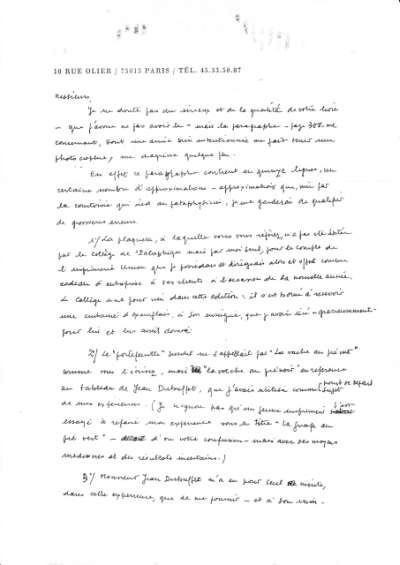 10 RUE OLIER / 75015 PARIS / TÉL. 45.33.50.87
Messieurs,
Je ne doute pas du sérieux et de la qualité de votre livre
- que j'avoue ne pas avoir lu - mais le paragraphe - page 308 me
concernant, dont une amie bien intentionnée me fait tenir une
photocopie, me chagrine quelque peu.
En effet ce paragraphe contient en quinze lignes, un
certain nombre d'approximations - approximations que, mû par
la courtoisie qui sied au pataphysicien, je me garderai de qualifier
de grossières erreurs.
1°/ La plaquette, à laquelle vous vous référez, n'a pas été éditée
par le Collège de 'Pataphysique mais par moi seul, pour le compte de
l'imprimerie Union que je possédais et dirigeais alors et offert comme
cadeau d'entreprise à ses clients à l'occasion de la nouvelle année.
Le Collège n'est pour rien dans cette édition : il s'est borné à recevoir
une centaine d'exemplaires, à son enseigne, que j'avais tiré - gracieusement -
pour lui et lui avais donné.
2°/ Le "portefeuille" susdit ne s'appellait pas "La vache au pré vert"
comme vous l'écrivez, mais "la vache au pré noir" en référence
au tableau de Jean Dubuffet, que j'avais utilisé comme point de départ
de mes expériences. (Je n'ignore pas qu'un jeune imprimeur s'est
essayé à refaire mon expérience sous le titre "La girafe au
pré vert" - d'où votre confusion - mais avec des moyens
médiocres et des résultats incertains.)
3°/ Monsieur Jean Dubuffet n'a eu pour seul mérite,
dans cette expérience, que de me fournir - et à bon